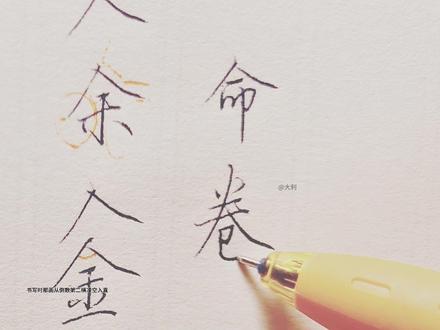 人
余
人
金
命
卷
@大利
书写时那画从倒数第二横空入直